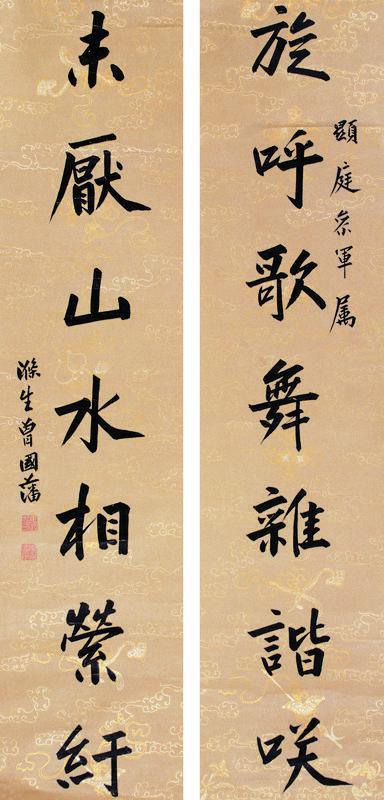 顯庭叅軍属
旋呼歌舞雜諧咲
未厭山水相縈紆
滌生曾國藩